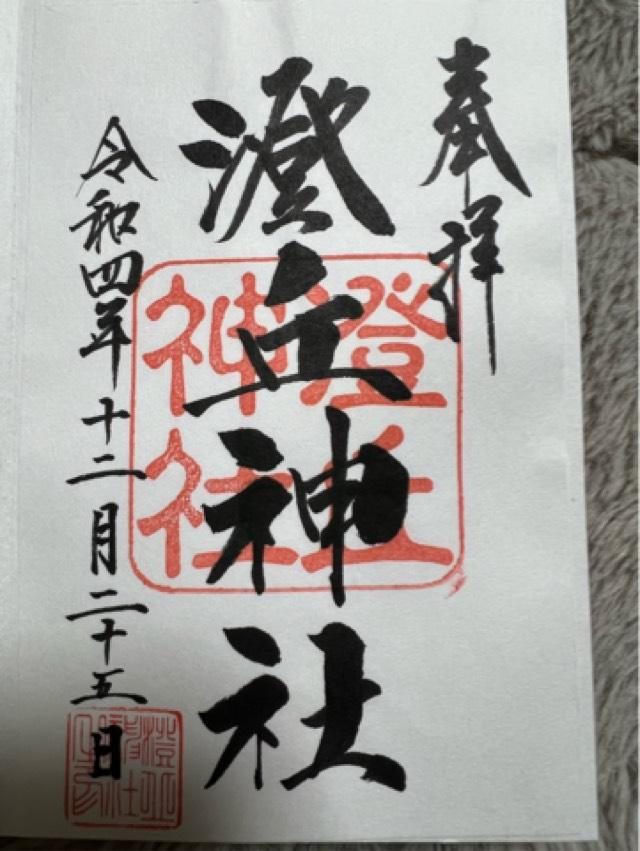 奉拝
澄丘神社
澄丘
神社
令和四年十二月二十五日